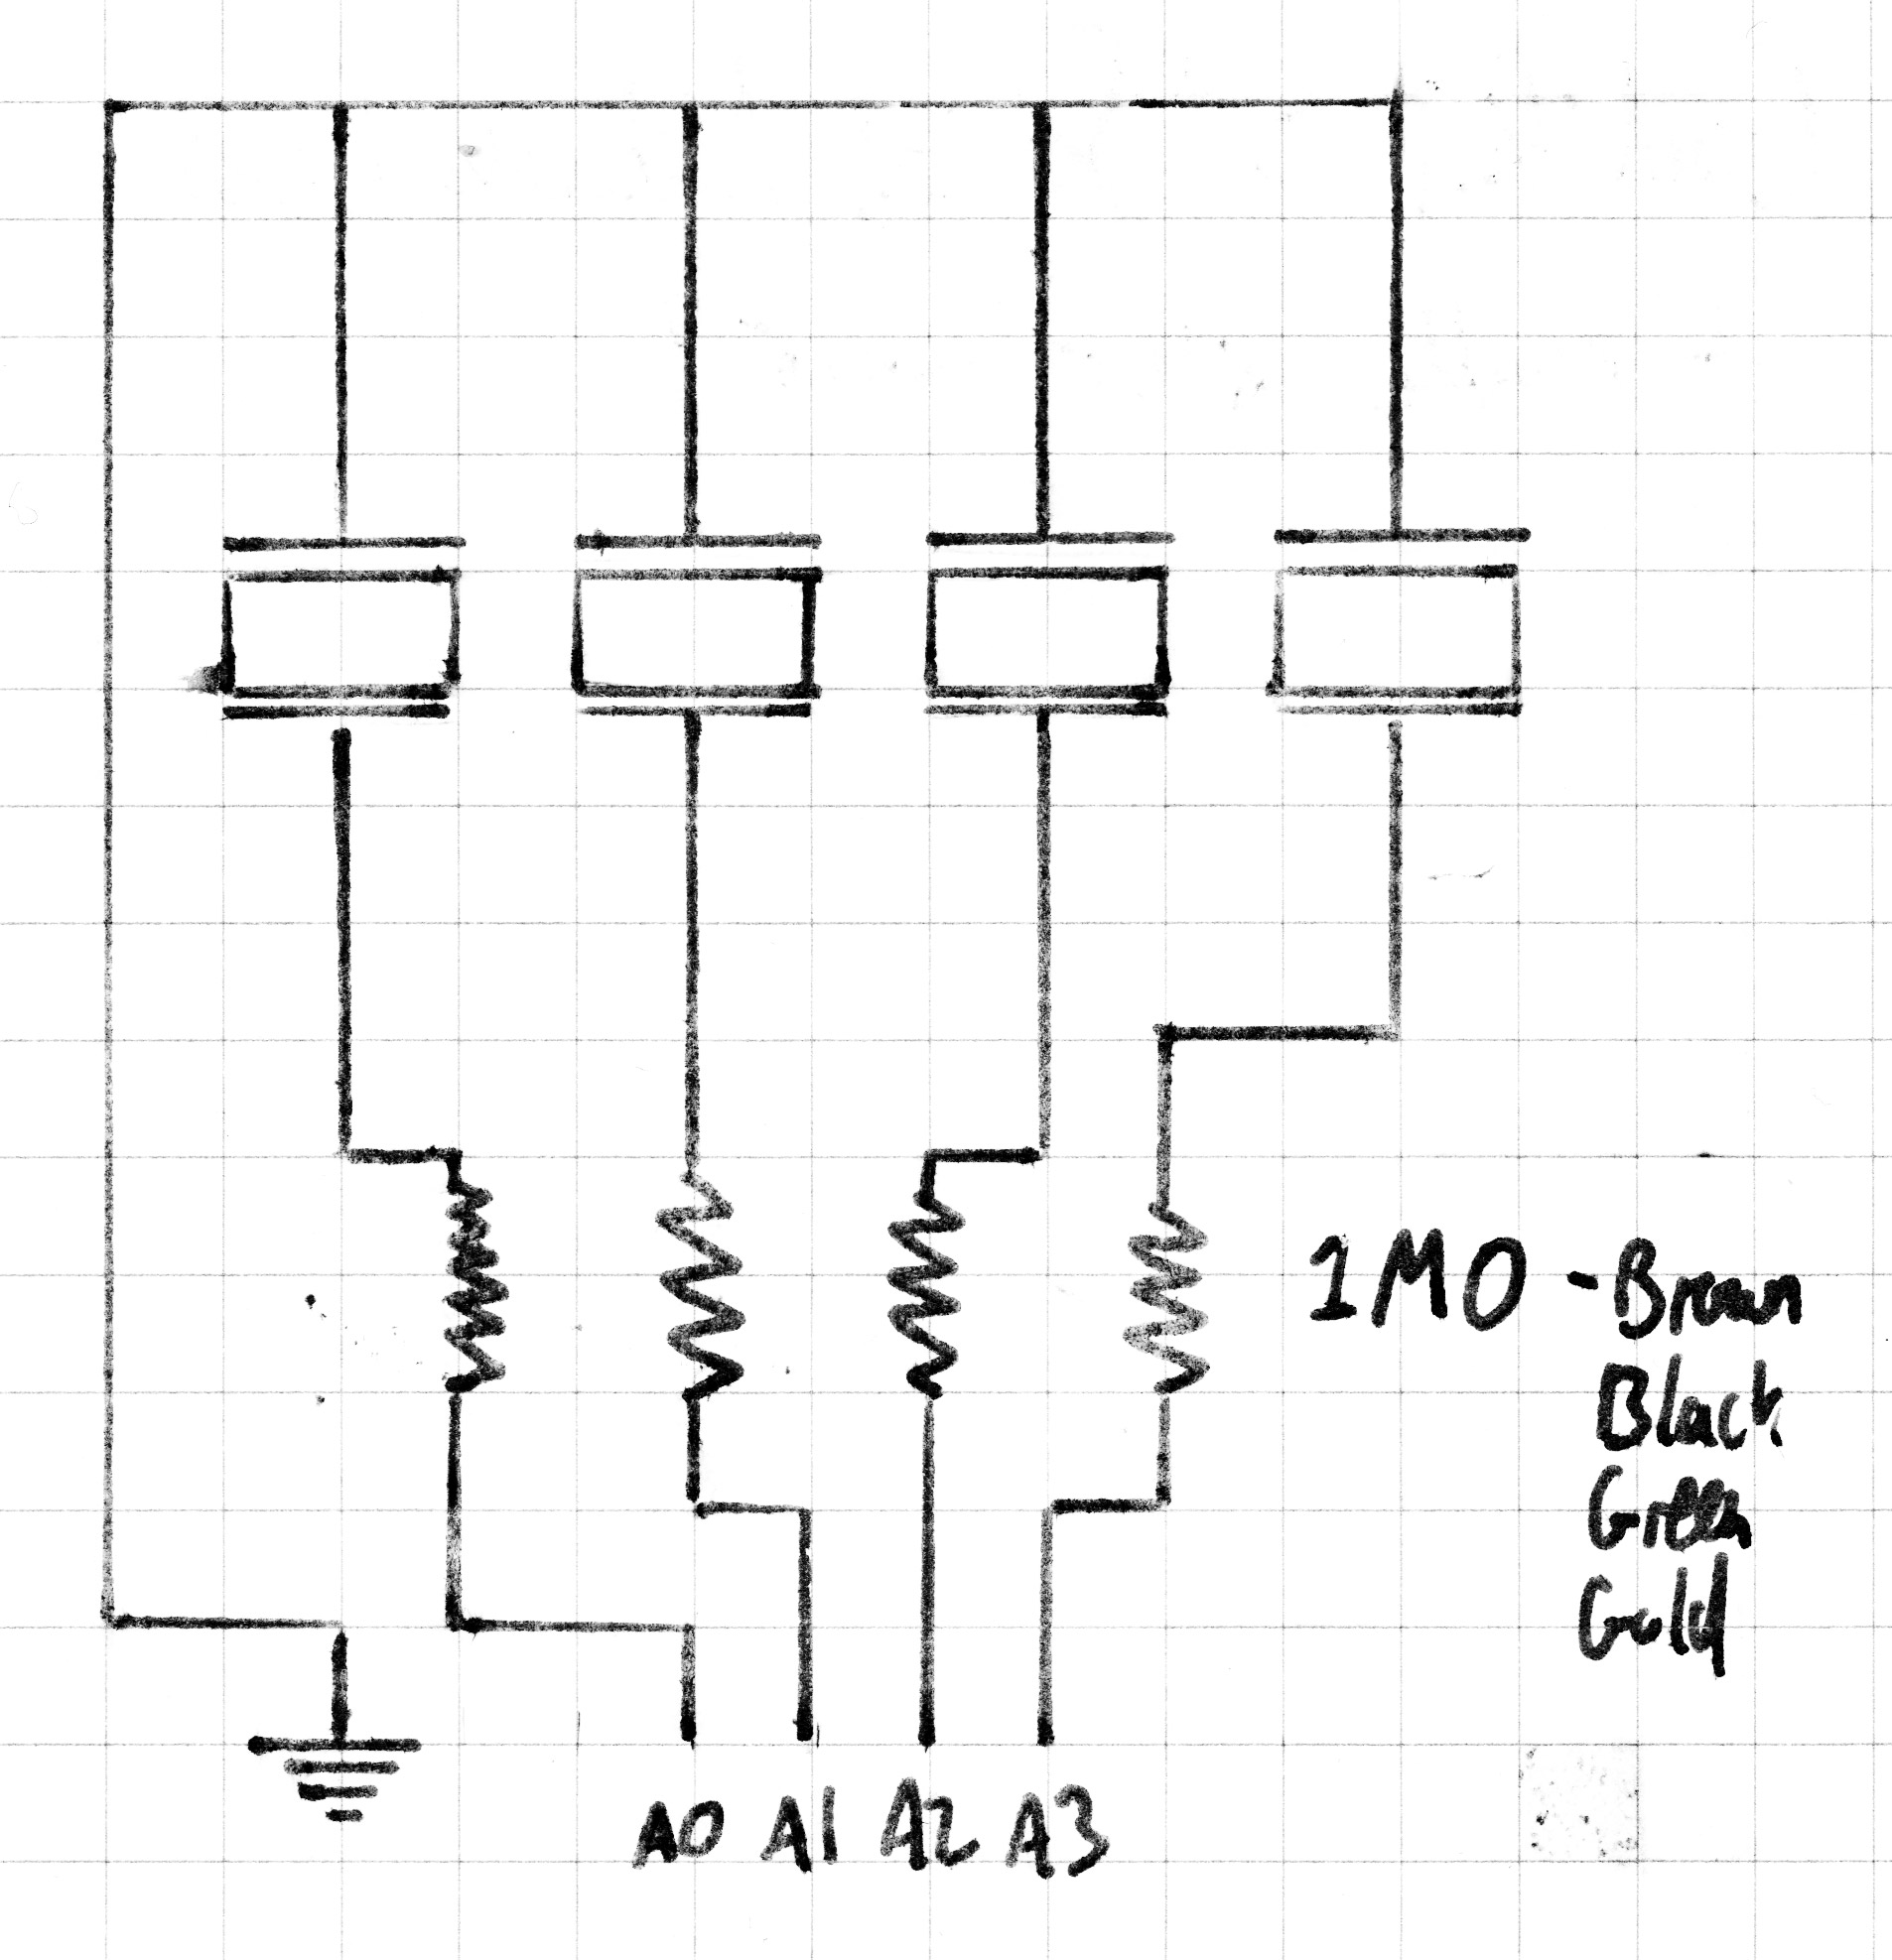 1MO - Brown
Black
Green
Gold
A0 A1 A2 A3